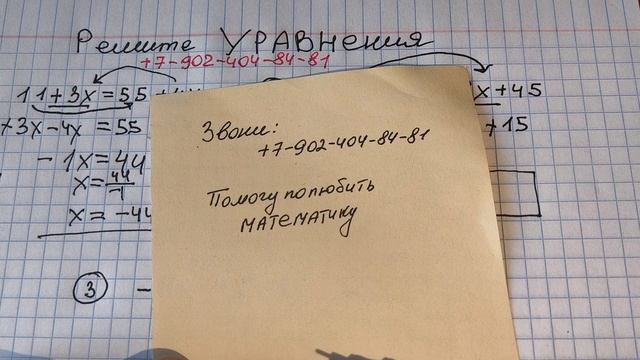 Решите УРАВНЕНИЯ
+7-902-404-84-81
11+3x=55
x+45
+3x-4x=55
+15
-1x=44
x=44/-1
x=-44
Звони:
+7-902-404-84-81
Помогу полюбить
математику
3 -